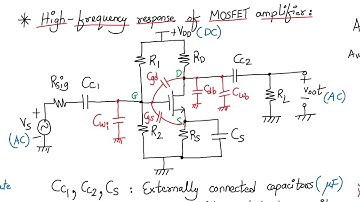 * High-frequency response of MOSFET amplifier:
+VDD (DC)
R1
RD
CC2
Cgd
D
Rsig
CC1
G
Cdb
CWo
+
Vout (AC)
RL
VS
(AC)
CWi
Cgs
S
R2
RS
CS
CC1, CC2, CS : Externally connected capacitors (μF)